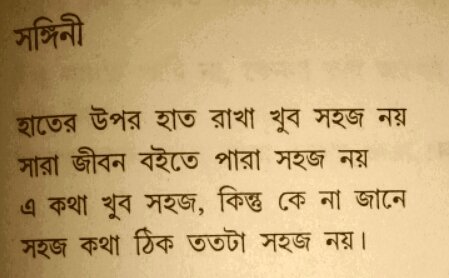 সঙ্গিনী
হাতের উপর হাত রাখা খুব সহজ নয়
সারা জীবন বইতে পারা সহজ নয়
এ কথা খুব সহজ, কিন্তু কে না জানে
সহজ কথা ঠিক ততটা সহজ নয়।